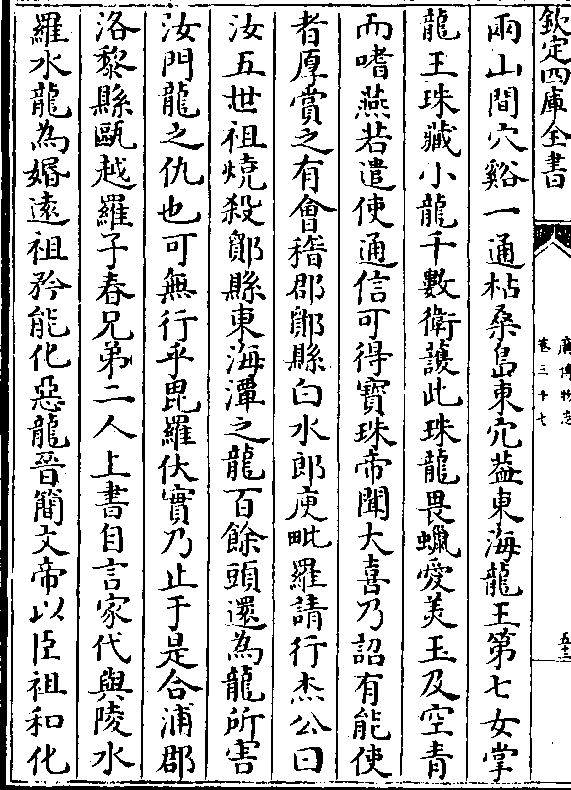 欽定四庫全書
廣博物志
卷三十七
五十三
兩山間穴谿一通枯桑島東穴葢東海龍王第七女掌
龍王珠藏小龍千數衛䕶此珠龍畏蠟愛美玉及空青
而嗜燕若遣使通信可得寳珠帝聞大喜乃詔有能使
者厚賞之有會稽郡鄮縣白水郎庾毗羅請行杰公曰
汝五世祖燒殺鄮縣東海潭之龍百餘頭還為龍所害
汝門龍之仇也可無行乎毘羅伏實乃止于是合浦郡
洛黎縣甌越羅子春兄弟二人上書自言家代與陵水
羅水龍為婚逺祖矜能化惡龍晉簡文帝以臣祖和化